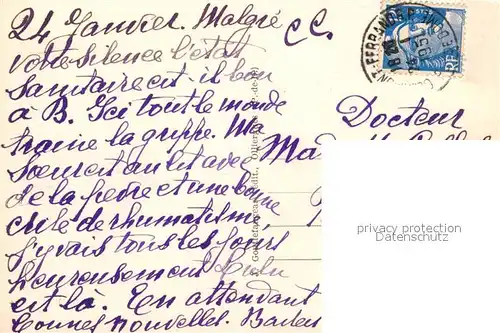 24 Janvier. Malgré
votre silence l'état
sanitaire est-il bon
à B. Ici tout le monde
traine la grippe. Ma
soeur est au lit avec
de la fievre et une bonne
crise de rhumatisme
j'y vais tous les jours
heureusement
est là. En attendant
bonnes nouvelles.
C.C.
Docteur
Ma
privacy protection
Datenschutz
RF